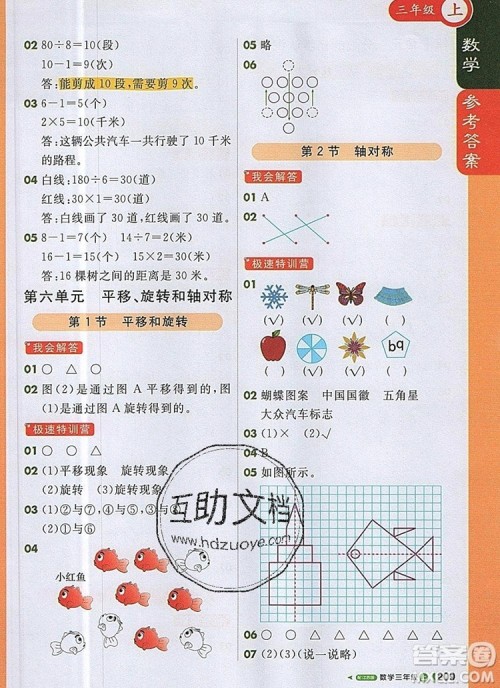 三年级 上
数学
参考答案
02 80÷8=10(段)
10-1=9(次)
答:能剪成10段,需要剪9次。
03 6-1=5(个)
2×5=10(千米)
答:这辆公共汽车一共行驶了10千米
的路程。
04 白线:180÷6=30(道)
红线:30×1=30(道)
答:白线画了30道,红线画了30道。
05 8-1=7(个) 14÷7=2(米)
16-1=15(个) 15×2=30(米)
答:16棵树之间的距离是30米。
第六单元 平移、旋转和轴对称
第1节 平移和旋转
我会解答
01 ○ △ ○
02 图(2)是通过图A平移得到的,图
(1)是通过图A旋转得到的。
极速特训营
01 ○ ○ △
02 (1)平移现象 旋转现象
(2)旋转 (3)旋转
03 ①与⑥
04
小红鱼
05 略
06
第2节 轴对称
我会解答
01 A
02
极速特训营
01
(√) (√) (√) (√)
(×) (×) (√) (×)
bq
02 蝴蝶图案 中国国徽 五角星
大众汽车标志
03 (1)× (2)√
04 B
05 如图所示。
06 ○ ○ △ △ △ △ △
07 (2)(3)(说一说略)
互助文档
www.hdzuoye.com
数学三年级
答案圈